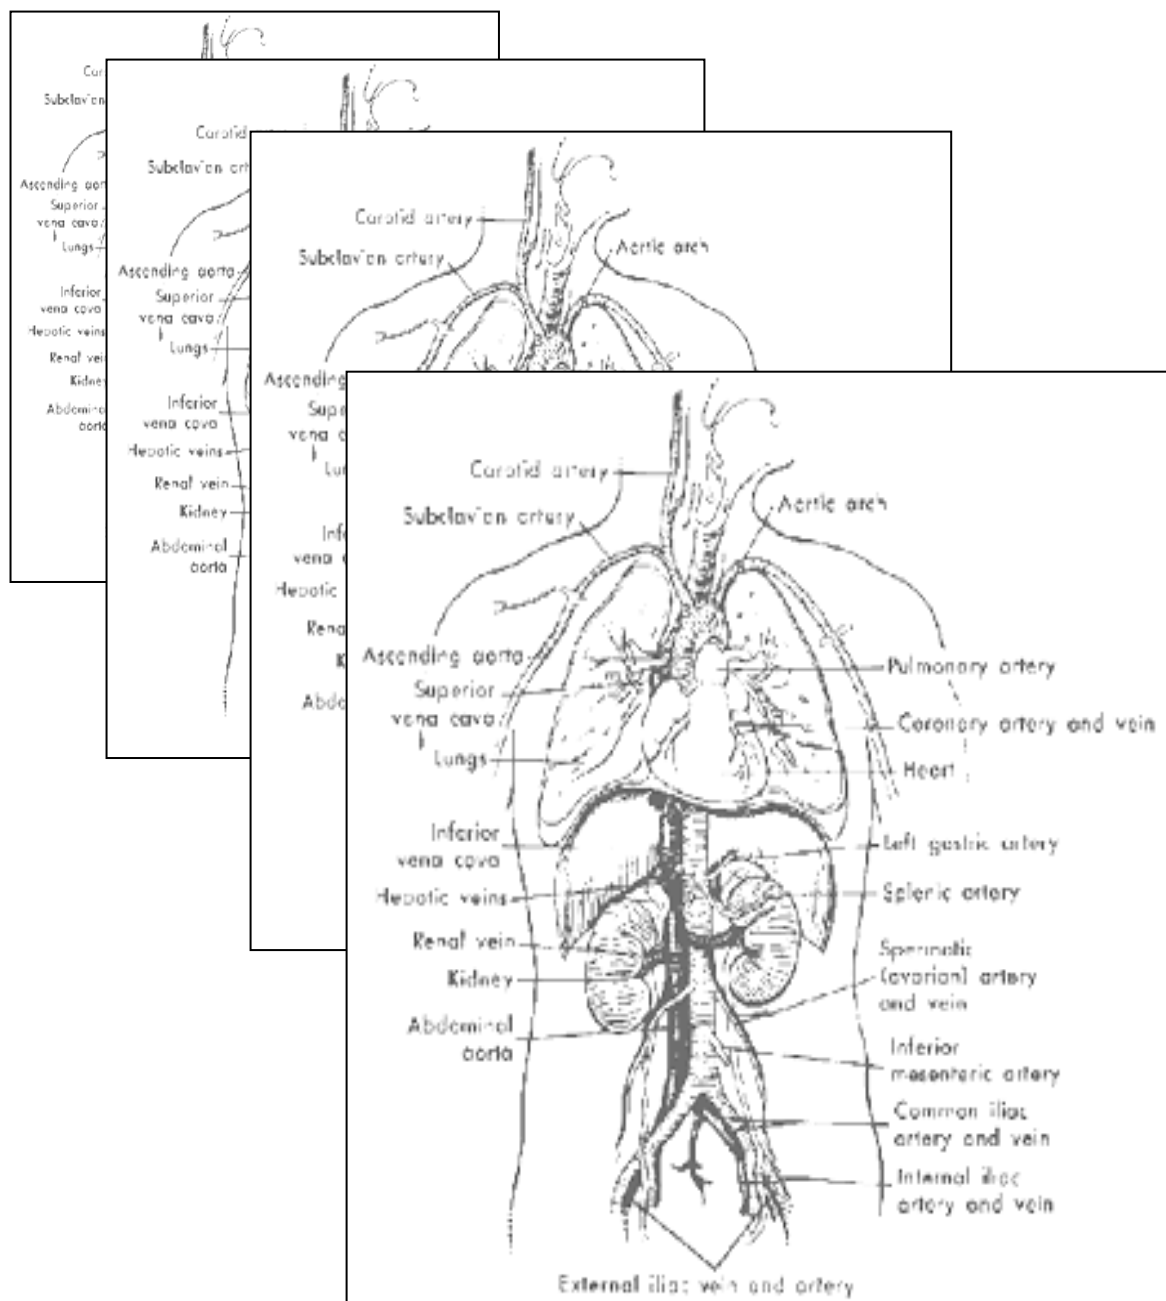 Car
Subclavian
Ascending aor
Superior
vena cava
Lungs
Inferior
vena cava
Hepatic veins
Renal vei
Kidney
Abdomina
aorta
Carotid
Subclavian art
Ascending aorta
Superior
vena cava
Lungs
Inferior
vena cava
Hepatic veins
Renal vein
Kidney
Abdominal
aorta
Carotid artery
Subclavian artery
Aortic arch
Ascending
Supe
vena c
Lun
Infe
vena c
Hepatic
Rena
K
Abdo
Carotid artery
Subclavian artery
Aortic arch
Ascending aorta
Superior
vena cava
Lungs
Inferior
vena cava
Hepatic veins
Renal vein
Kidney
Abdominal
aorta
Pulmonary artery
Coronary artery and vein
Heart
Left gastric artery
Splenic artery
Spermatic
(ovarian) artery
and vein
Inferior
mesenteric artery
Common iliac
artery and vein
Internal iliac
artery and vein
External iliac vein and artery